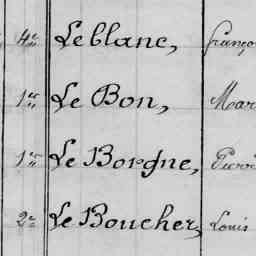 4e Leblanc, Franço
1er Le Bon, Mar
1er Le Borgne, Pierr
2e Le Boucher, Louis